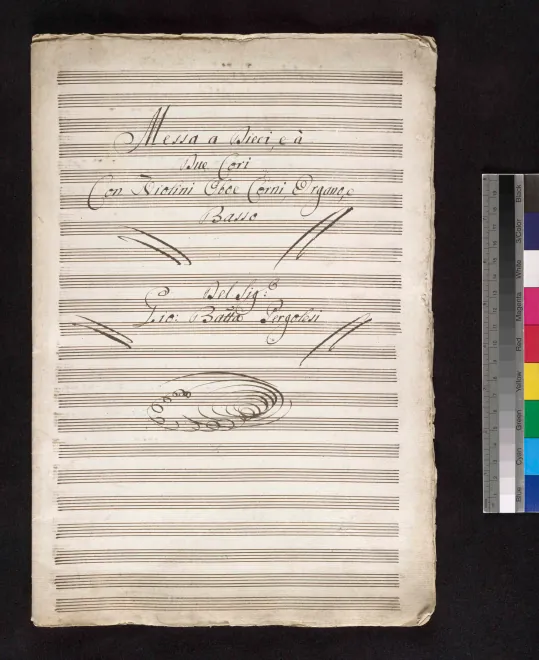 Messa a Dieci, e à
Due Cori
Con Violini Oboe Corni, Organo, e
Basso
Del Sig.e
Gio: Batta Pergolesi
Blue
Cyan
Green
Yellow
Red
Magenta
White
3/Color
Black